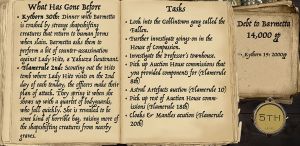 What Has Gone Before
• Kythorn 30th: Dinner with Barmetta
is crashed by strange shapeshifting
creatures that return to human forms
when slain. Barmetta asks them to
perform a bit of counter-assassination
against Lady Hite, a Yakuza lieutenant.
• Flamerule 2nd: Scouting out the Hite
tomb where Lady Hite visits on the 2nd
day of each tenday, the officers make their
plan of attack. They spring it when she
shows up with a quartet of bodyguards,
who fall quickly. She is revealed to be
some kind of horrible hag, raising more of
the shapeshifting creatures from nearby
graves.
Tasks
• Look into the Gallintown gang called the
Fallen.
• Further investigate goings-on in the
House of Compassion.
• Investigate the Professor's townhouse.
• Pick up Auction House commissions that
you provided components for (Flamerule
8th)
• Astral Artifacts auction (Flamerule 10)
• Pick up rest of Auction House comm-
issions (Flamerule 18th)
• Cloaks & Mantles auction (Flamerule
20th)
Debt to Barmetta
14,000 gp
• Kythorn 19: 2000gp
5TH